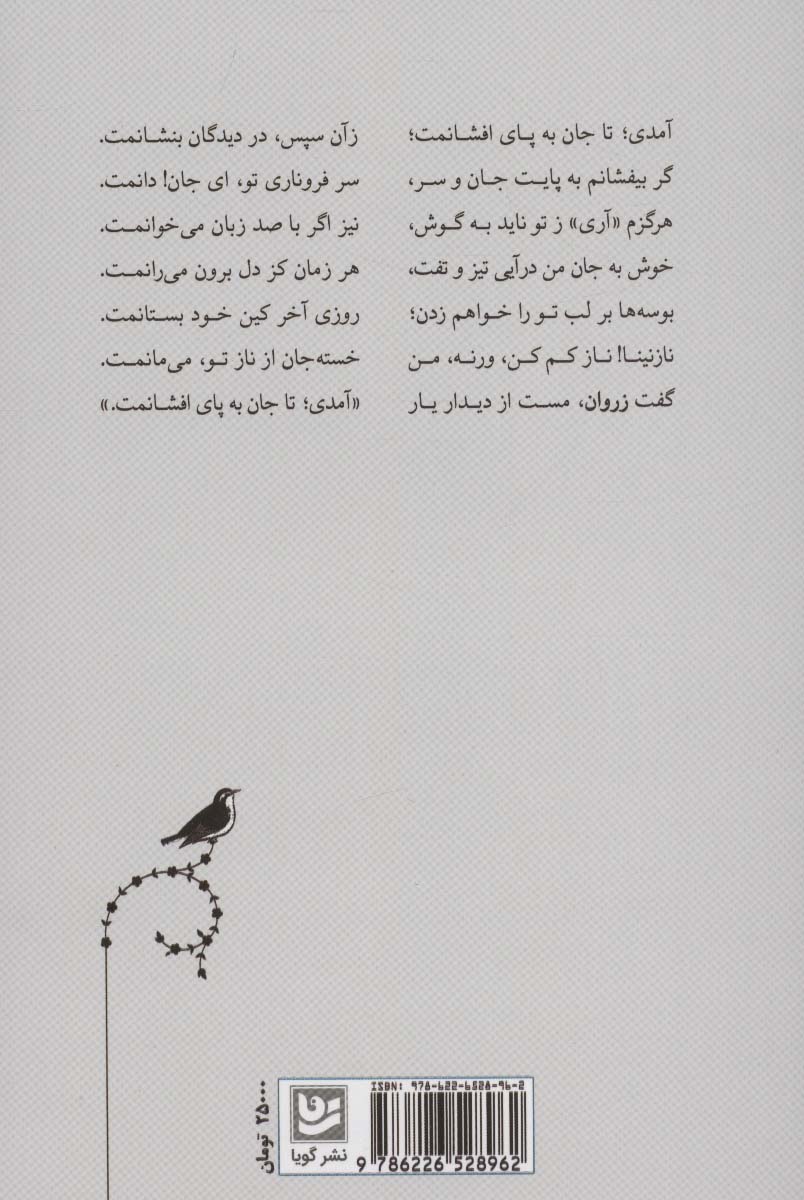 آمدی؛ تا جان به پای افشانمت؛ زآن سپس، در دیدگان بنشانمت.
گر بیفشانم به پایت جان و سر، سر فروناری تو، ای جان! دانمت.
هرگزم «آری» ز تو ناید به گوش، نیز اگر با صد زبان می‌خوانمت.
خوش به جان من درآیی تیز و تفت، هر زمان کز دل برون می‌رانمت.
بوسه‌ها بر لب تو را خواهم زدن؛ روزی آخر کین خود بستانمت.
نازنینا! ناز کم کن، ورنه، من خسته‌جان از ناز تو، می‌مانمت.
گفت زروان، مست از دیدار یار «آمدی؛ تا جان به پای افشانمت.»
۲۵۰۰۰ تومان
گویا
نشر گویا
ISBN: 978-622-6528-96-2
9 786226 528962